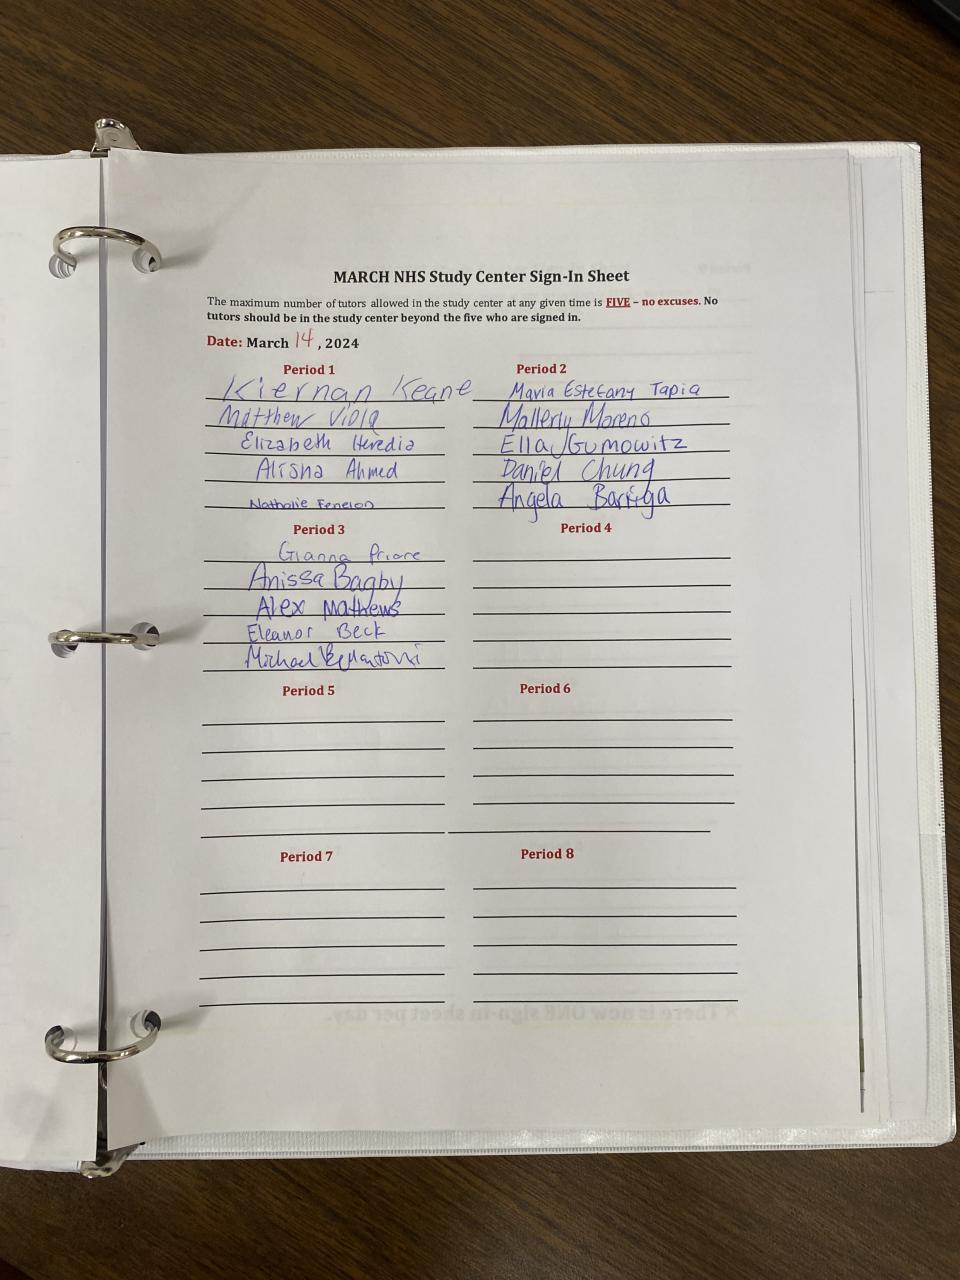 MARCH NHS Study Center Sign-In Sheet
The maximum number of tutors allowed in the study center at any given time is FIVE – no excuses. No
tutors should be in the study center beyond the five who are signed in.
Date: March 14, 2024
Period 1
Kiernan Keane
Matthew Viola
Elizabeth Heredia
Alisha Ahmed
Nathalie Fenelon
Period 2
Maria Estefany Tapia
Mallerly Moreno
Ella Gumowitz
Daniel Chung
Angela Barriga
Period 3
Gianna Priore
Anissa Bagby
Alex Mathews
Eleanor Beck
Michael Bellantoni
Period 4
Period 5
Period 6
Period 7
Period 8
* There is now ONE sign-in sheet per day.